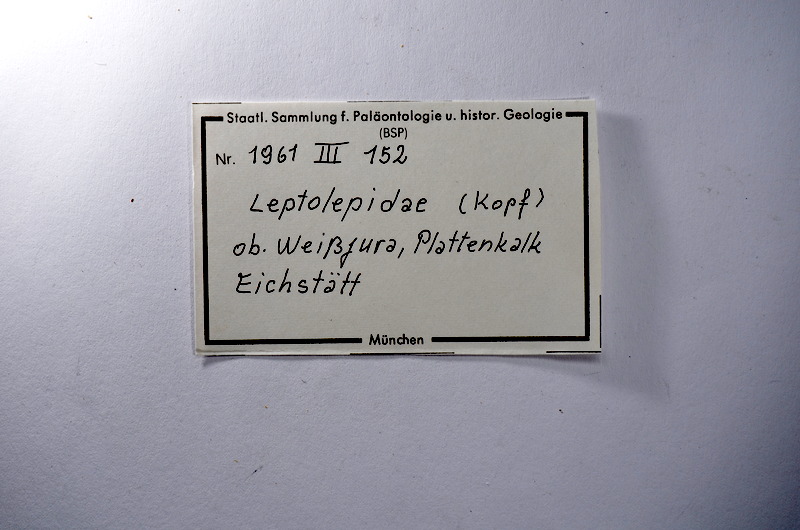 Staatl. Sammlung f. Paläontologie u. histor. Geologie
(BSP)
Nr. 1961 III 152
Leptolepidae (Kopf)
ob. Weißjura, Plattenkalk
Eichstätt
München